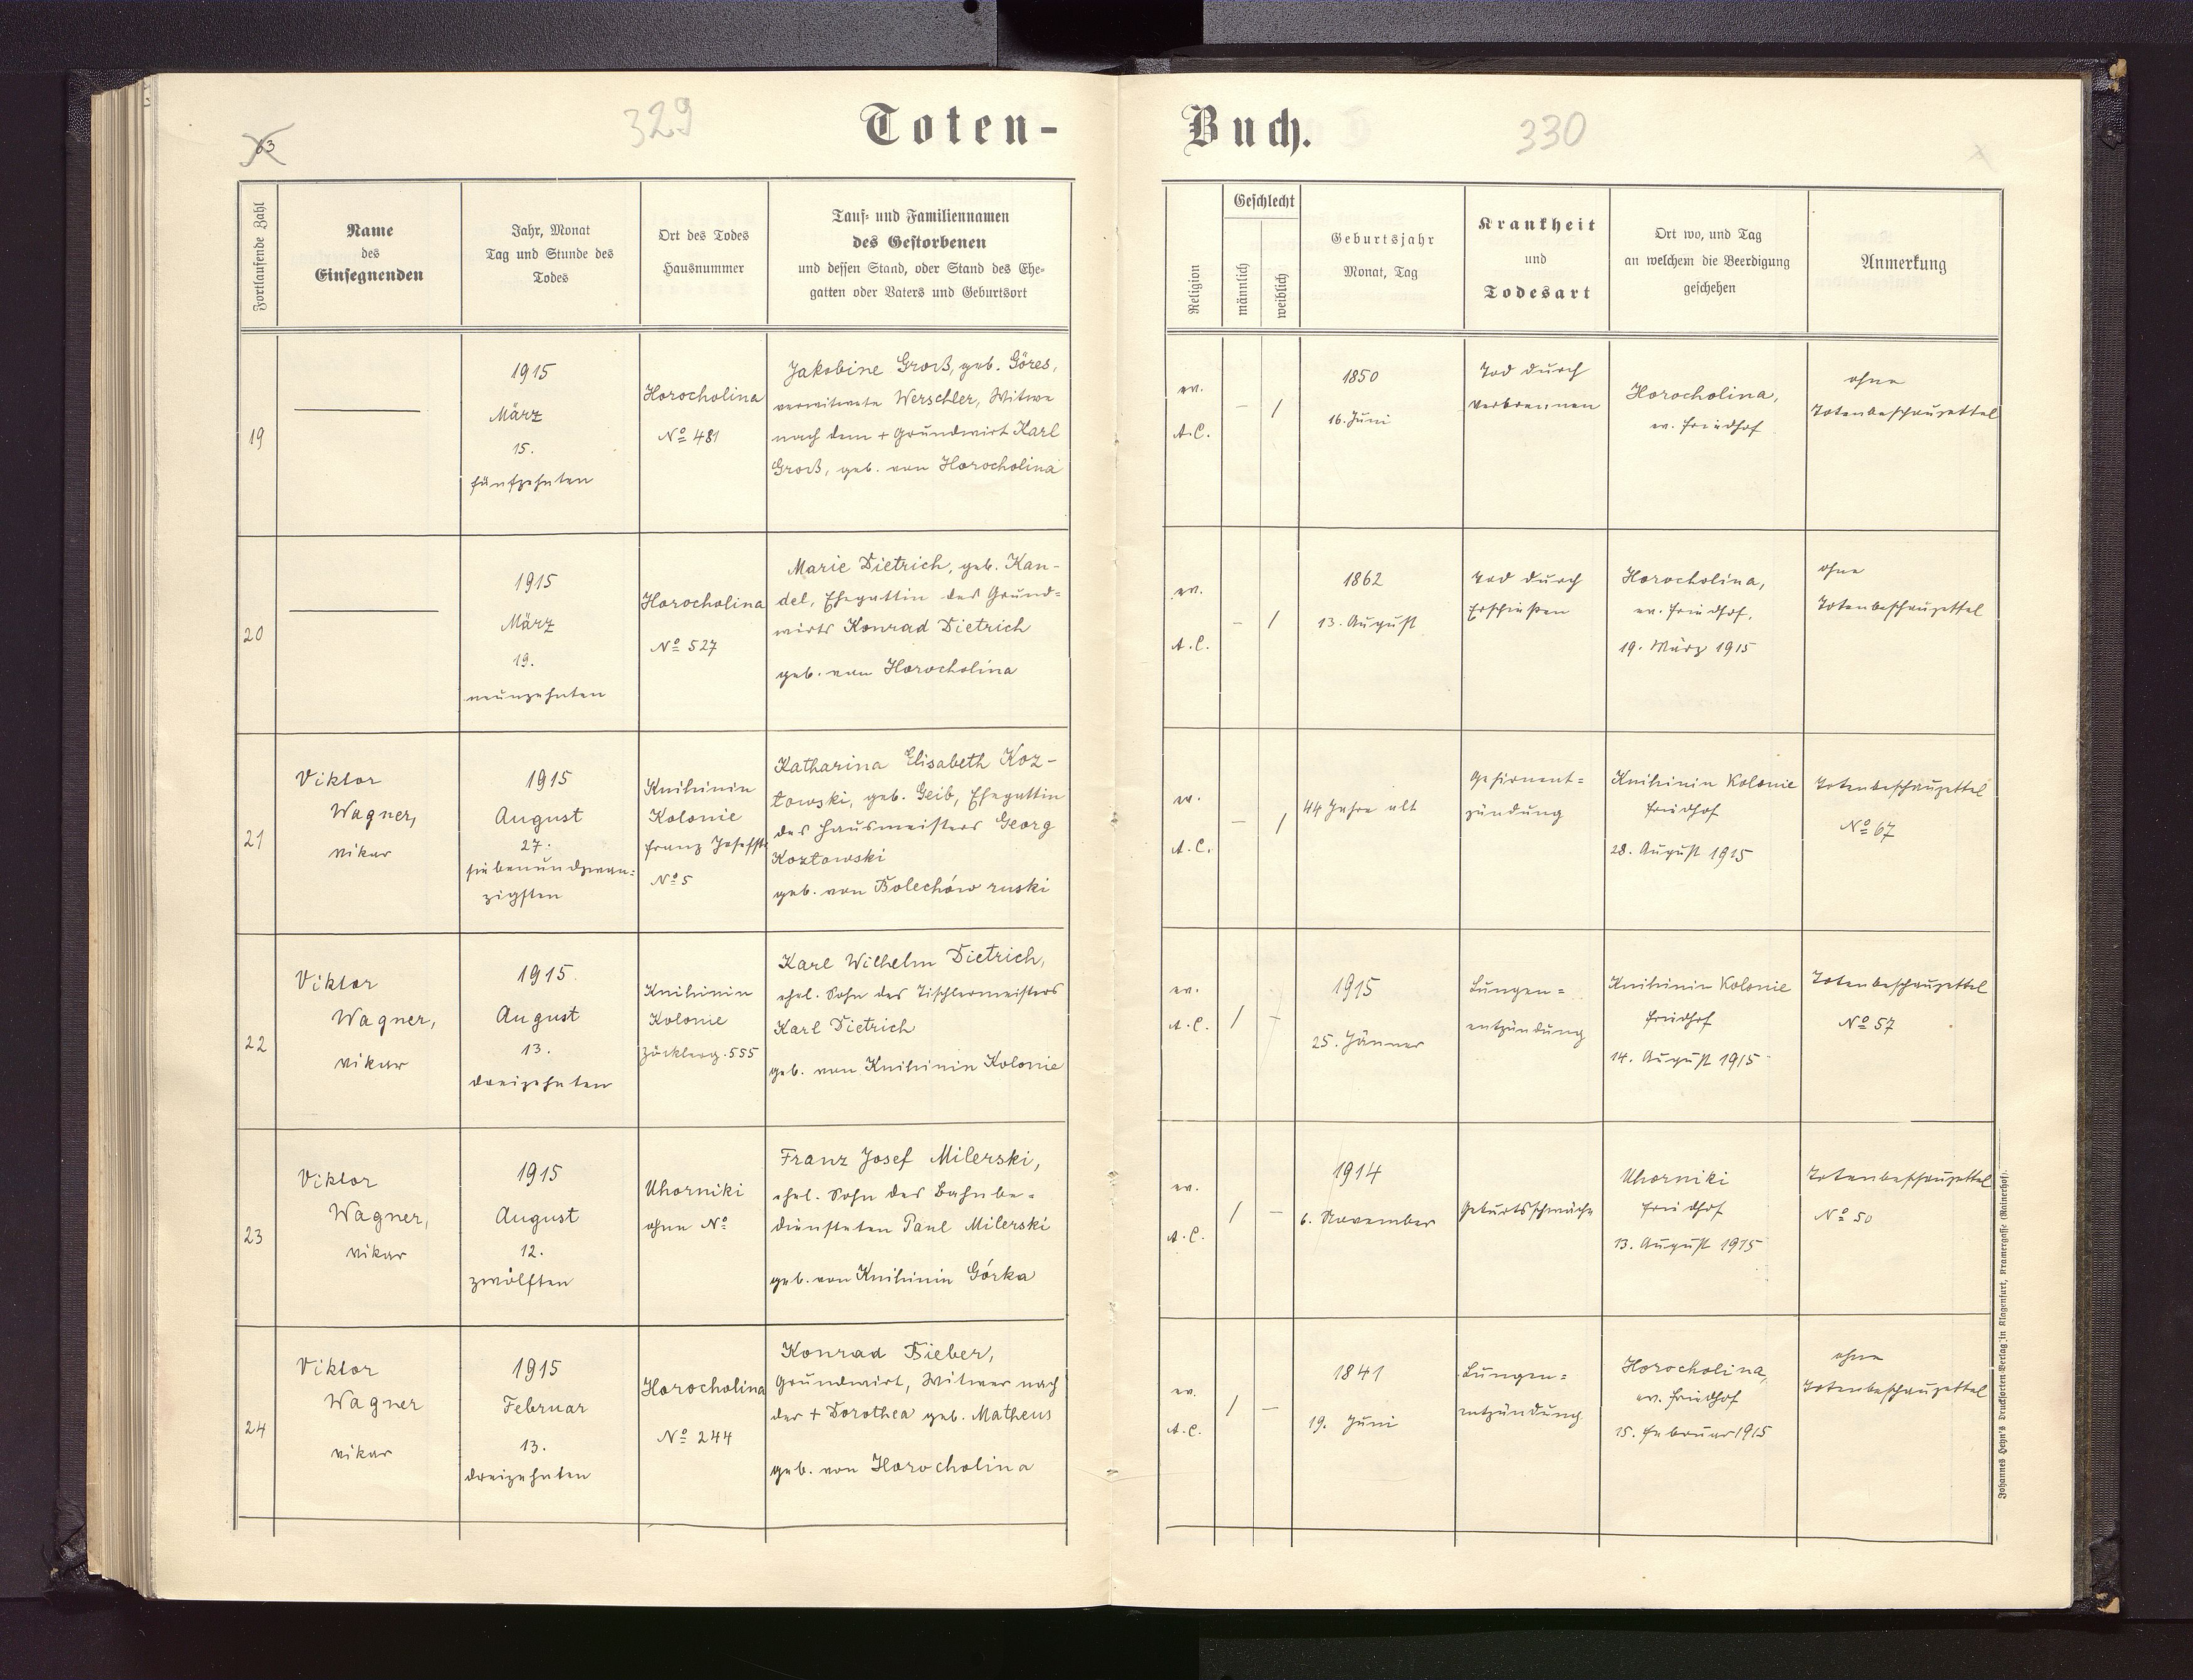 63
329
Toten-
Fortlaufende Zahl
Name
des
Einsegnenden
Jahr, Monat
Tag und Stunde des
Todes
Ort des Todes
Hausnummer
Tauf- und Familiennamen
des Gestorbenen
und dessen Stand, oder Stand des Ehe-
gatten oder Vaters und Geburtsort
19
1915
März
15.
fünfzehnten
Horocholina
No 481
Jakobine Groß, geb. Göres,
verwitwete Werschler, Witwe
nach dem + Grundwirt Karl
Groß, geb. von Horocholina
20
1915
März
19.
neunzehnten
Horocholina
No 527
Marie Dietrich, geb. Kan-
del, Ehegattin des Grund=
wirts Konrad Dietrich
geb. von Horocholina
21
Viktor
Wagner,
Vikar
1915
August
27.
siebenundzwan=
zigsten
Knihinin
Kolonie
Franz Josefstr
No 5
Katharina Elisabeth Koz-
łowski, geb. Geib, Ehegattin
des Hausmeisters Georg
Kozłowski
geb. von Bolechów ruski
22
Viktor
Wagner,
Vikar
1915
August
13.
dreizehnten
Knihinin
Kolonie
Zöcklerg. 555
Karl Wilhelm Dietrich,
ehel. Sohn des Tischlermeisters
Karl Dietrich
geb. von Knihinin Kolonie
23
Viktor
Wagner,
Vikar
1915
August
12.
zwölften
Uhorniki
ohne No
Franz Josef Milerski,
ehel. Sohn des Bahnbe=
diensteten Paul Milerski
geb. von Knihinin Górka
24
Viktor
Wagner
Vikar
1915
Februar
13.
dreizehnten
Horocholina
No 244
Konrad Bieber,
Grundwirt, Witwer nach
der + Dorothea geb. Matheus
geb. von Horocholina
Buch.
330
Religion
Geschlecht
männlich
weiblich
Geburtsjahr
Monat, Tag
Krankheit
und
Todesart
Ort wo, und Tag
an welchem die Beerdigung
geschehen
Anmerkung
ev.
A.C.
– /
1850
16. Juni
Tod durch
Verbrennen
Horocholina,
ev. Friedhof
ohne
Totenbeschauzettel
ev.
A.C.
– /
1862
13. August
Tod durch
Erschießen
Horocholina,
ev. Friedhof,
19. März 1915
ohne
Totenbeschauzettel
ev.
A.C.
– /
44 Jahre alt
Gehirnent=
zündung
Knihinin Kolonie
Friedhof
28. August 1915
Totenbeschauzettel
No 67
ev.
A.C.
/ –
1915
25. Jänner
Lungen=
entzündung
Knihinin Kolonie
Friedhof
14. August 1915
Totenbeschauzettel
No 57
ev.
A.C.
/ –
1914
6. November
Geburtsschwäche
Uhorniki
Friedhof
13. August 1915
Totenbeschauzettel
No 50
ev.
A.C.
/ –
1841
19. Juni
Lungen=
entzündung
Horocholina,
ev. Friedhof
15. Februar 1915
ohne
Totenbeschauzettel
Johannes Heyn's Drucksorten-Verlag in Klagenfurt, Kramergasse (Rainerhof).